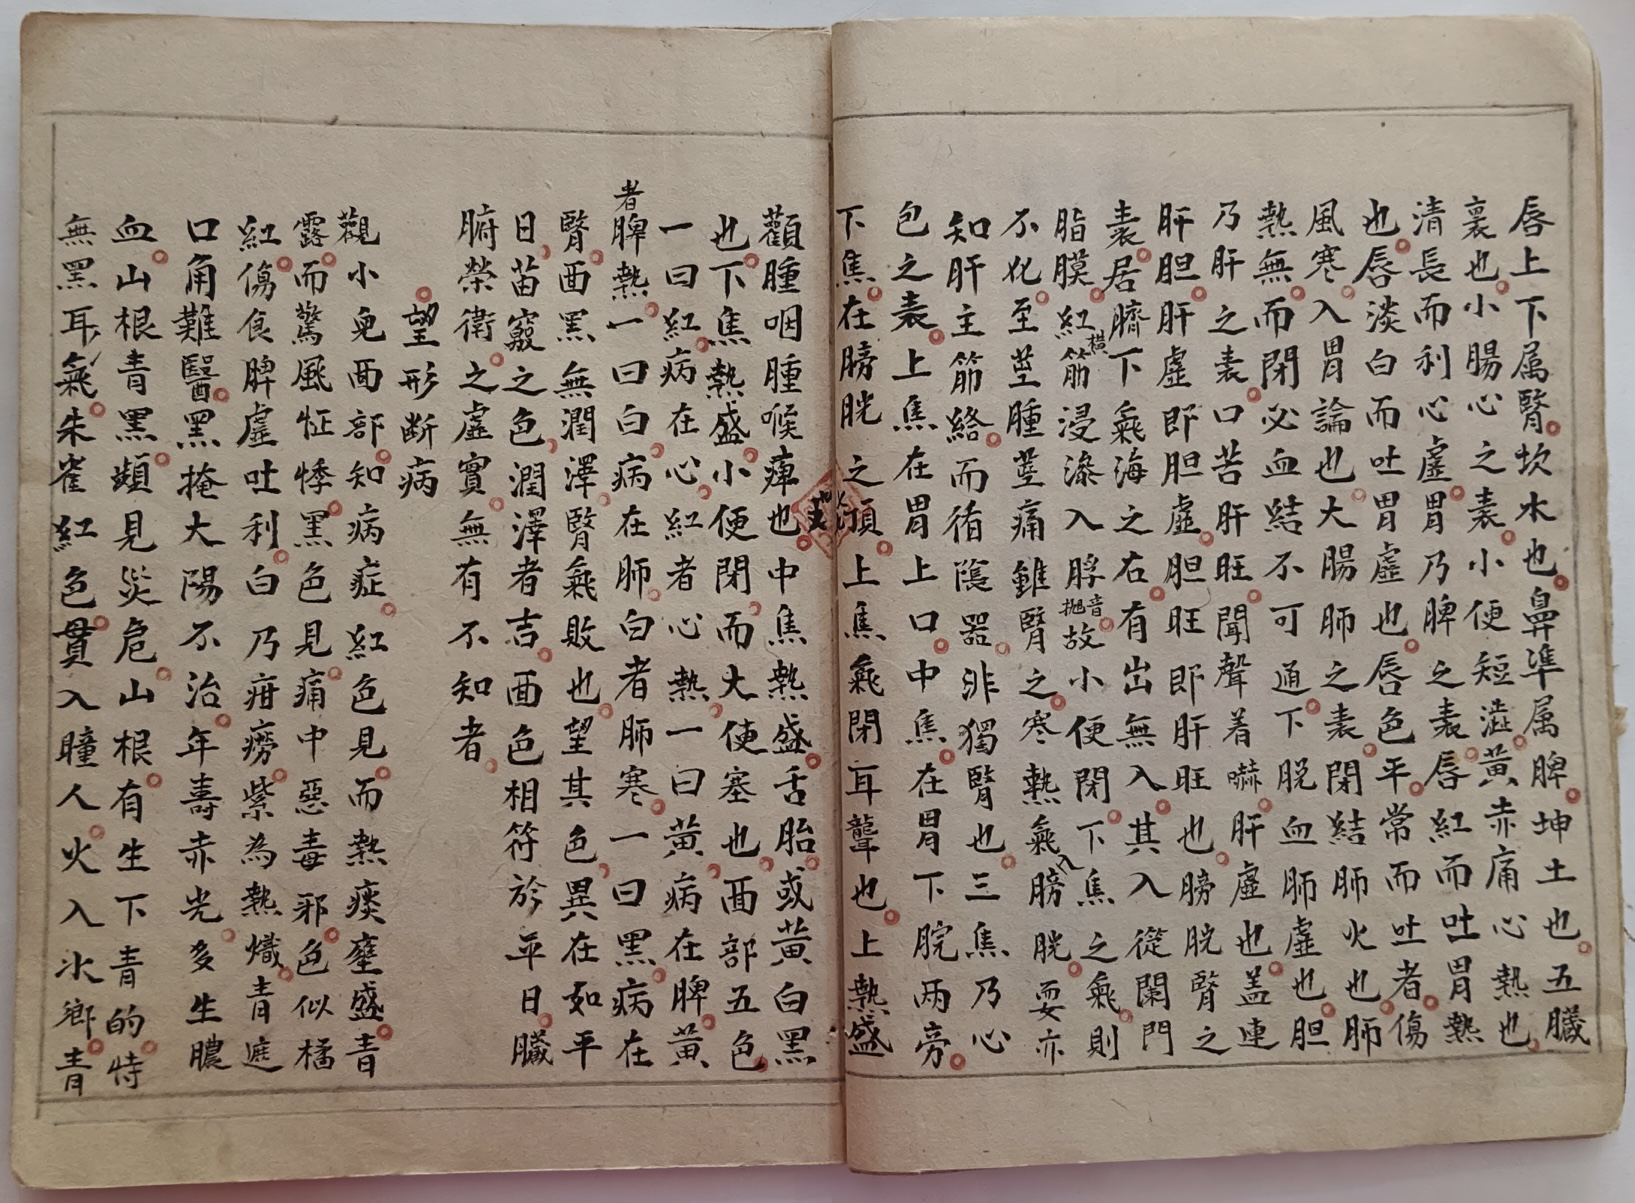 唇上下属腎坎水也鼻準属脾坤土也五臓
裏也小腸心之表小便短澁黄赤痛心熱也
清長而利心虛胃乃脾之表唇紅而吐胃熱
也唇淡白而吐胃虛也唇色平常而吐者傷
風寒入胃論也大腸肺之表閉結肺火也肺
熱無而閉必血結不可通下脱血肺虛也胆
乃肝之表口苦肝旺聞聲着嚇肝虛也盖連
肝胆肝虛即胆虛胆旺即肝旺也膀胱腎之
表居臍下氣海之右有出無入其入從闌門
脂膜紅横筋浸滲入脬音抛故小便閉下焦之氣則
不化至莖腫莖痛錐腎之寒熱氣入膀胱耍亦
知肝主筋絡而循隂器非獨腎也三焦乃心
包之表上焦在胃上口中焦在胃下脘两旁
下焦在膀胱之頂上焦氣閉耳聾也上熱盛
顴腫咽腫喉痺也中焦熱盛舌胎或黄白黑
也下焦熱盛小便閉而大便塞也面部五色
一曰紅病在心紅者心熱一曰黄病在脾黄
者脾熱一曰白病在肺白者肺寒一曰黑病在
腎面黑無潤澤腎氣敗也望其色異在如平
日苗竅之色潤澤者吉面色相符於平日臓
腑榮衛之虛實無有不知者
望形断病
觀小兒面部知病症紅色見而熱痰壅盛青
露而驚風怔悸黑色見痛中惡毒邪色似橘
紅傷食脾虛吐利白乃疳癆紫為熱熾青遮
口角難醫黑掩大陽不治年壽赤光多生膿
血山根青黑頻見災危山根有生下青的特
無黑耳氣朱雀紅色貫入瞳人火入水鄉青